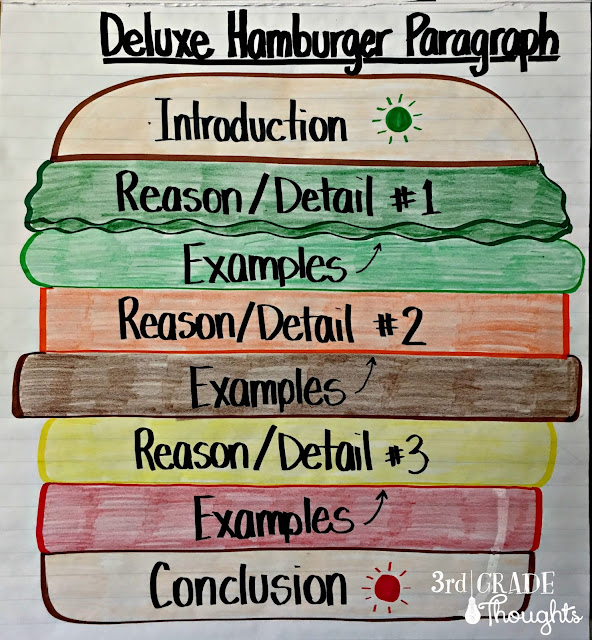 Deluxe Hamburger Paragraph
Introduction
Reason/Detail #1
Examples
Reason/Detail #2
Examples
Reason/Detail #3
Examples
Conclusion
3rd GRADE
Thoughts